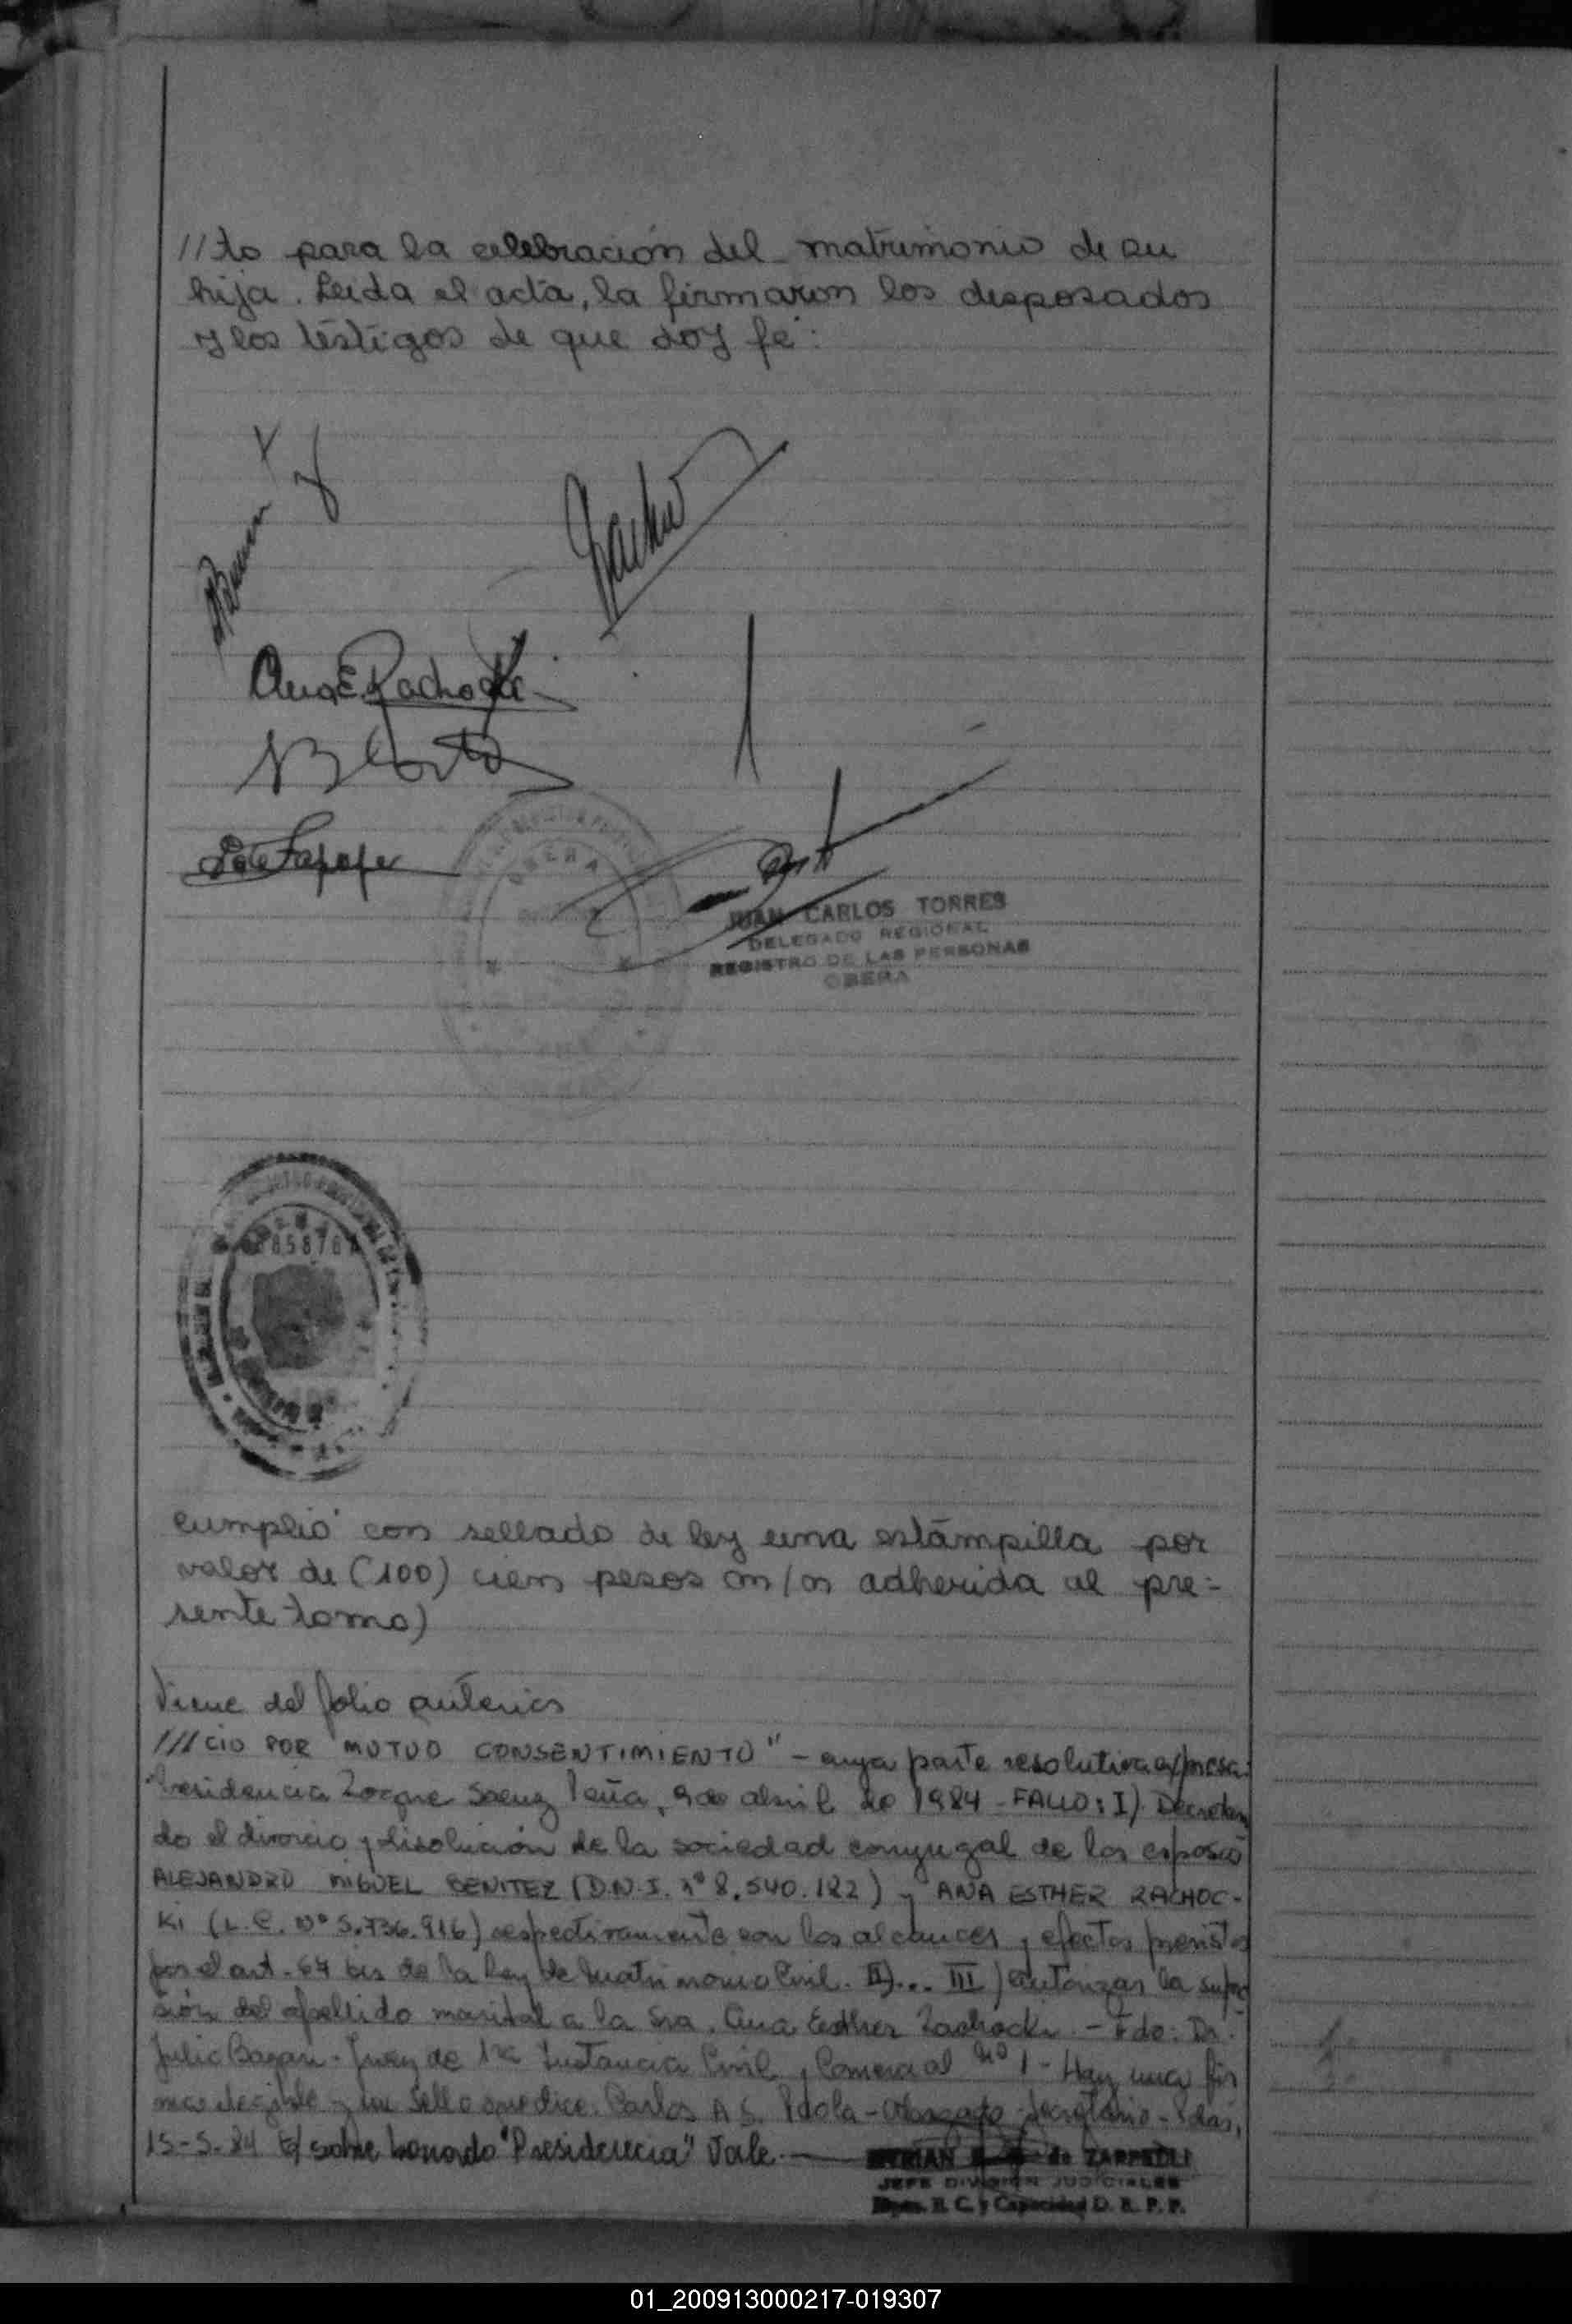 //to para la celebración del matrimonio de su
hija. Leida el acta, la firmaron los desposados
y los testigos de que doy fe:
Ana E. Rachocki
OBERA
JUAN CARLOS TORRES
DELEGADO REGIONAL
REGISTRO DE LAS PERSONAS
OBERA
cumplió con sellado de ley una estampilla por
valor de (100) cien pesos m/n adherida al pre=
sente tomo)
Viene del folio anterior
///CIO POR "MUTUO CONSENTIMIENTO" - cuya parte resolutiva expresa:
Presidencia Roque Saenz Peña, 9 de abril de 1984 - FALLO: I) Decretan
do el divorcio y disolución de la sociedad conyugal de los esposos
ALEJANDRO MIGUEL BENITEZ (D.N.I. nº 8.540.122) y ANA ESTHER RACHOC-
KI (L.C. Nº 5.736.916) respectivamente con los alcances y efectos previstos
por el art. 67 bis de la Ley de Matrimonio Civil. II)... III) Autorizar la supre
sión del apellido marital a la Sra. Ana Esther Rachocki. - Fdo: Dr.
Julio Bazan - Juez de 1ra Instancia Civil y Comercial Nº 1 - Hay una fir
ma ilegible y un sello que dice: Carlos A. S. - Abogado - Secretario - Pdas,
15-5-84 E/ sobre borrado "Presidencia" Vale.
de ZARPEDLI
JEFE DIVISION JUDICIALES
Dpto. R. C. y Capacidad D. R. P. P.
01_200913000217-019307